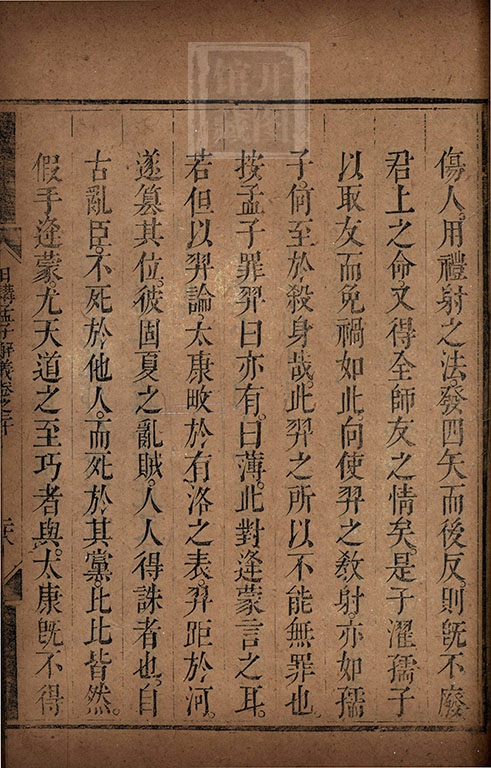 傷人。用禮射之法。發四矢而後反。則既不廢
君上之命。又得全師友之情矣。是子濯孺子
以取友而免禍如此。向使羿之教射亦如孺
子。何至於殺身哉。此羿之所以不能無罪也。
按孟子罪羿曰亦有。曰薄。此對逢蒙言之耳。
若但以羿論太康畋於有洛之表。羿距於河。
遂簒其位。彼固夏之亂賊。人人得誅者也。自
古亂臣。不死於他人。而死於其黨。比比皆然。
假手逢蒙。尤天道之至巧者與。太康旣不得
日講孟子解義卷之